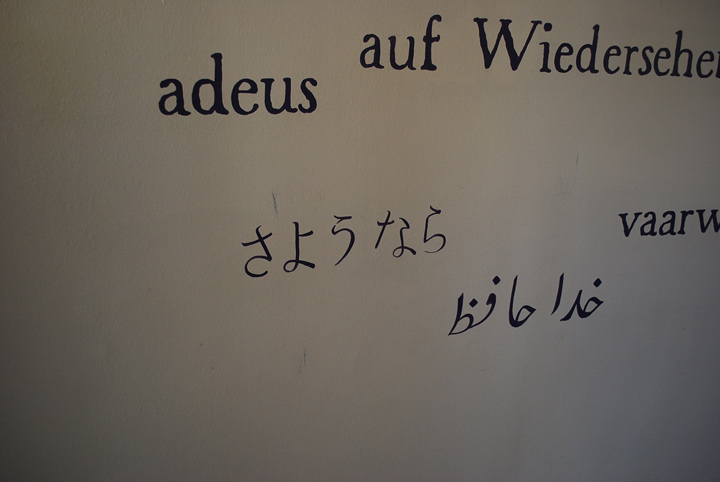 auf Wiedersehe
adeus
さようなら
vaarw
خدا حافظ